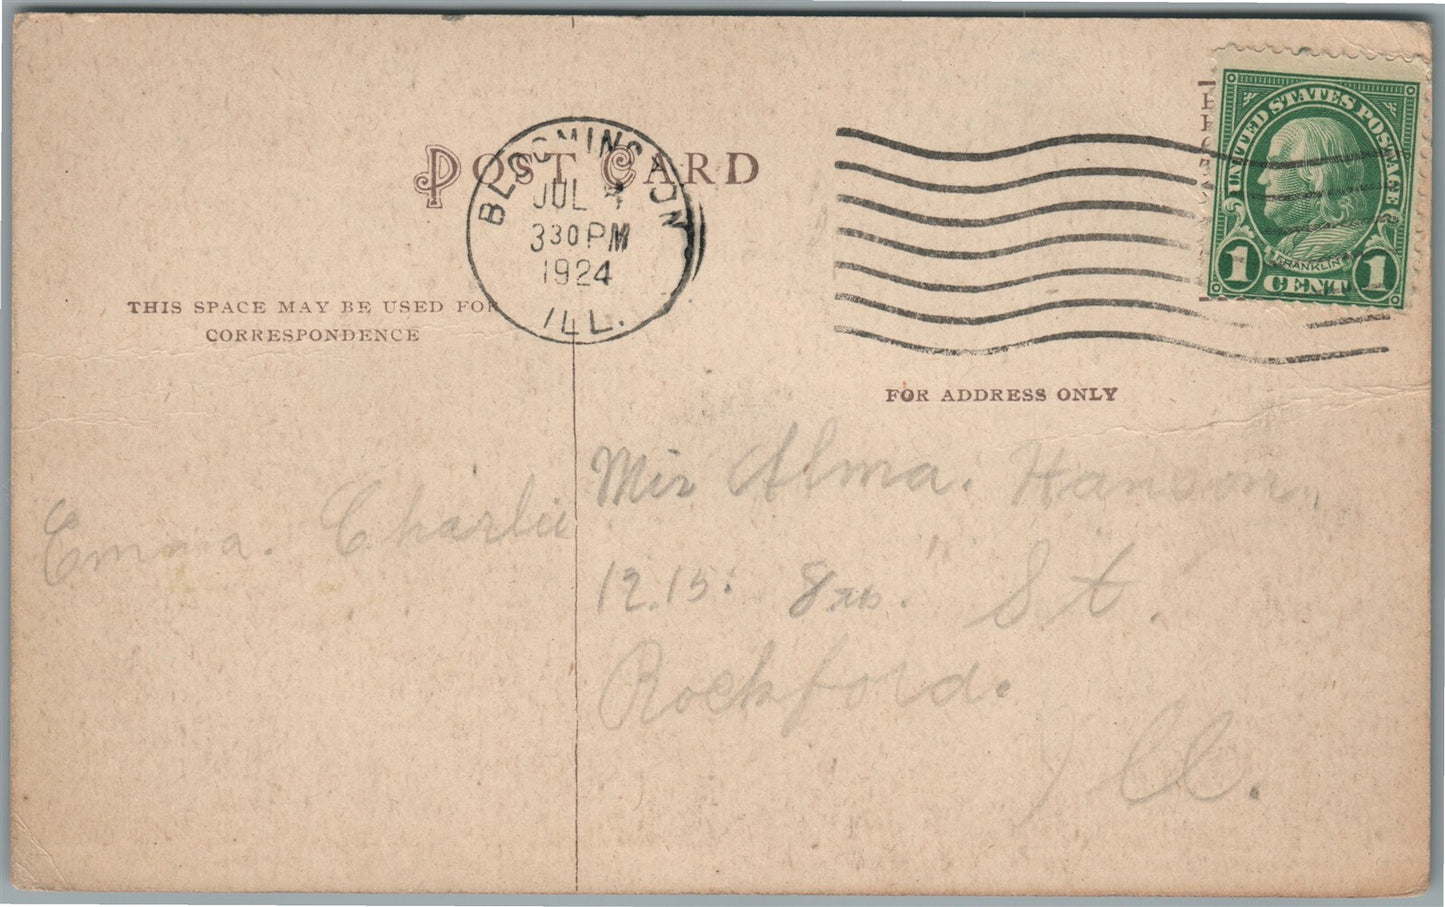 POST CARD
BLOOMINGTON
JUL 4
3 30 PM
1924
ILL.
UNITED STATES POSTAGE
FRANKLIN
1 CENT 1
THIS SPACE MAY BE USED FOR
CORRESPONDENCE
FOR ADDRESS ONLY
Emma. Charlie
Mis Alma. Hanson
12.15. 8th. St.
Rockford.
Ill.